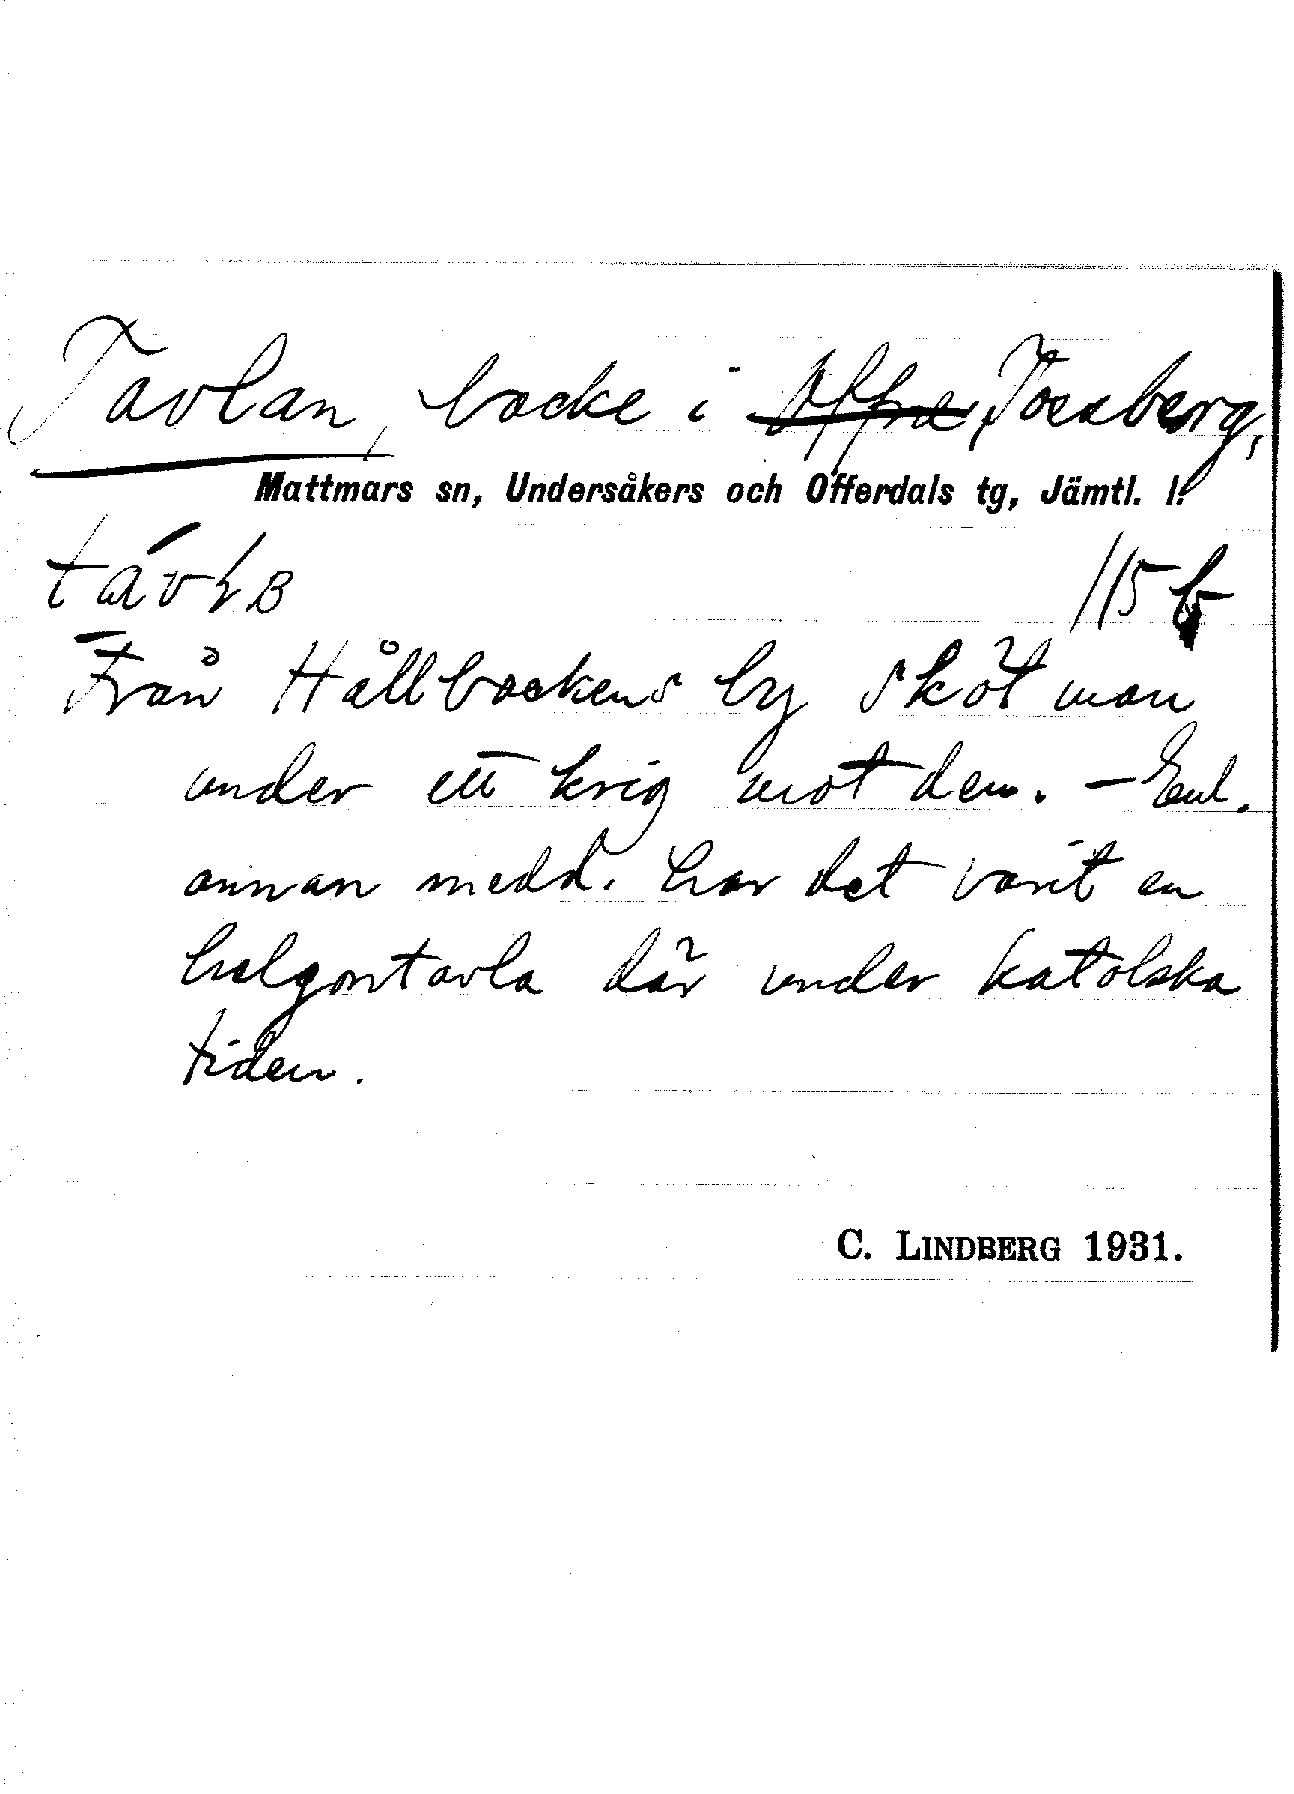 Tavlan, backe i Offne Tossberg,
Mattmars sn, Undersåkers och Offerdals tg, Jämtl. l.
115 b
Från Hållbackens by sköt man
under ett krig mot den. – Enl.
annan medd. har det varit en
helgontavla där under katolska
tiden.
C. LINDBERG 1931.